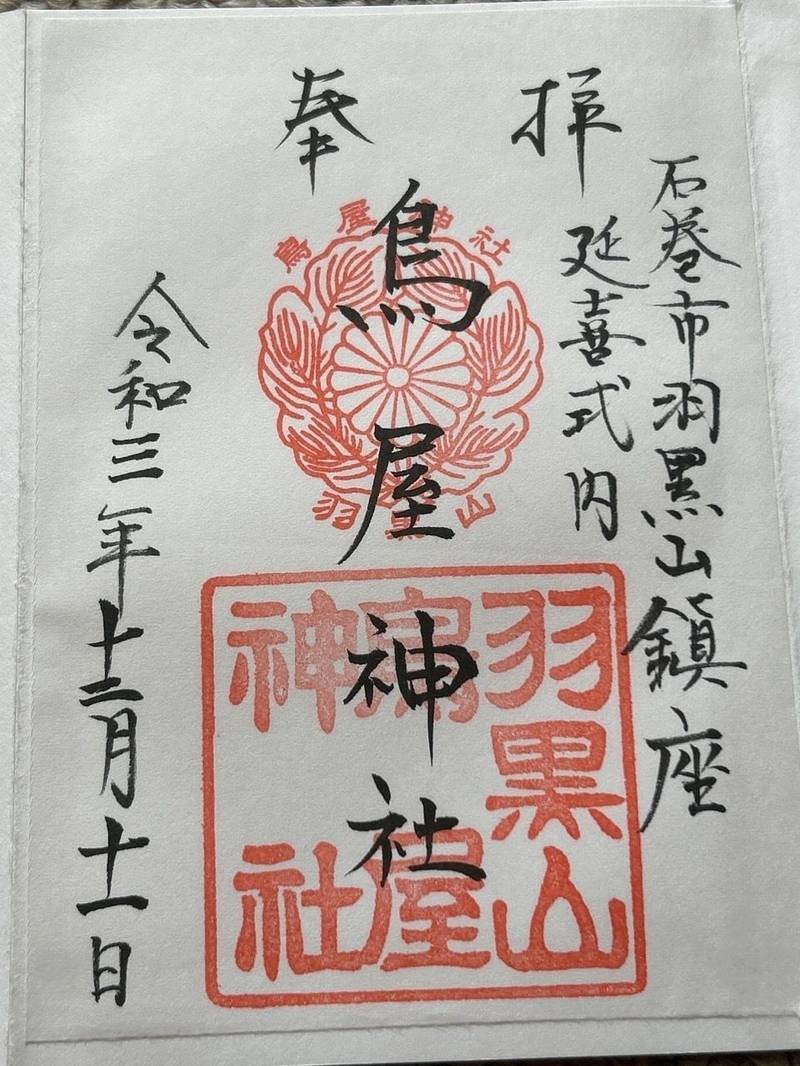 奉拝
石巻市羽黒山鎮座
延喜式内
鳥屋神社
令和三年十二月十一日
鳥屋神社
羽黒山
羽黒山
鳥屋
神社